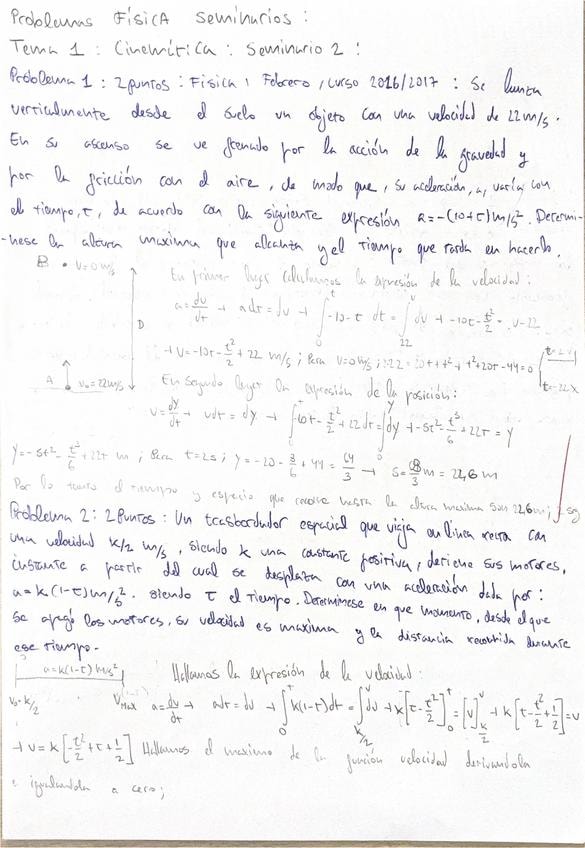 Problemas Física Seminarios:
Tema 1: Cinemática: Seminario 2:
Problema 1: 2puntos: Física, Febrero, curso 2016/2017: Se lanza
verticalmente desde el suelo un objeto con una velocidad de 22 m/s.
En su ascenso se ve frenado por la acción de la gravedad y
por la fricción con el aire, de modo que, su aceleración, a, varía con
el tiempo, t, de acuerdo con la siguiente expresión a=-(10+t)m/s². Determí-
-nese la altura máxima que alcanza y el tiempo que tarda en hacerlo.
B • v=0 m/s
En primer lugar calculamos la expresión de la velocidad:
a=dv/dt → adt=dv → ∫₀ᵗ -10-t dt = ∫₂₂ᵛ dv → -10t-t²/2 = v-22
D
→ v=-10t-t²/2+22 m/s; Para v=0 m/s; t²+20t-44=0
t=2 ✓
t=-22 X
A v₀=22m/s
En segundo lugar la expresión de la posición:
v=dy/dt → vdt=dy → ∫₀ᵗ -10t-t²/2+22 dt=∫₀ʸ dy → -5t²-t³/6+22t=y
y=-5t²-t³/6+22t m; Para t=2s; y=-20-8/6+44=/3 → m = 22,6 m
Por lo tanto el tiempo y espacio que recorre hasta la altura máxima son 22,6m;
Problema 2: 2puntos: Un trasbordador espacial que viaja en línea recta con
una velocidad k/2 m/s, siendo k una constante positiva, detiene sus motores,
instante a partir del cual se desplaza con una aceleración dada por:
a=k(1-t)m/s². siendo t el tiempo. Determínese en que momento, desde el que
se apagó los motores, su velocidad es máxima y la distancia recorrida durante
ese tiempo.
a=k(1-t) m/s²
Hallamos la expresión de la velocidad:
v₀=k/2 Vmax a=dv/dt → adt=dv → ∫₀ᵗ k(1-t)dt = ∫ₖ/₂ᵛ dv → k[t-t²/2]₀ᵗ = [v]ₖ/₂ᵛ → k[t-t²/2+1/2]=v
→ v=k[-t²/2+t+1/2] Hallamos el máximo de la función velocidad derivándola
e igualándola a cero;